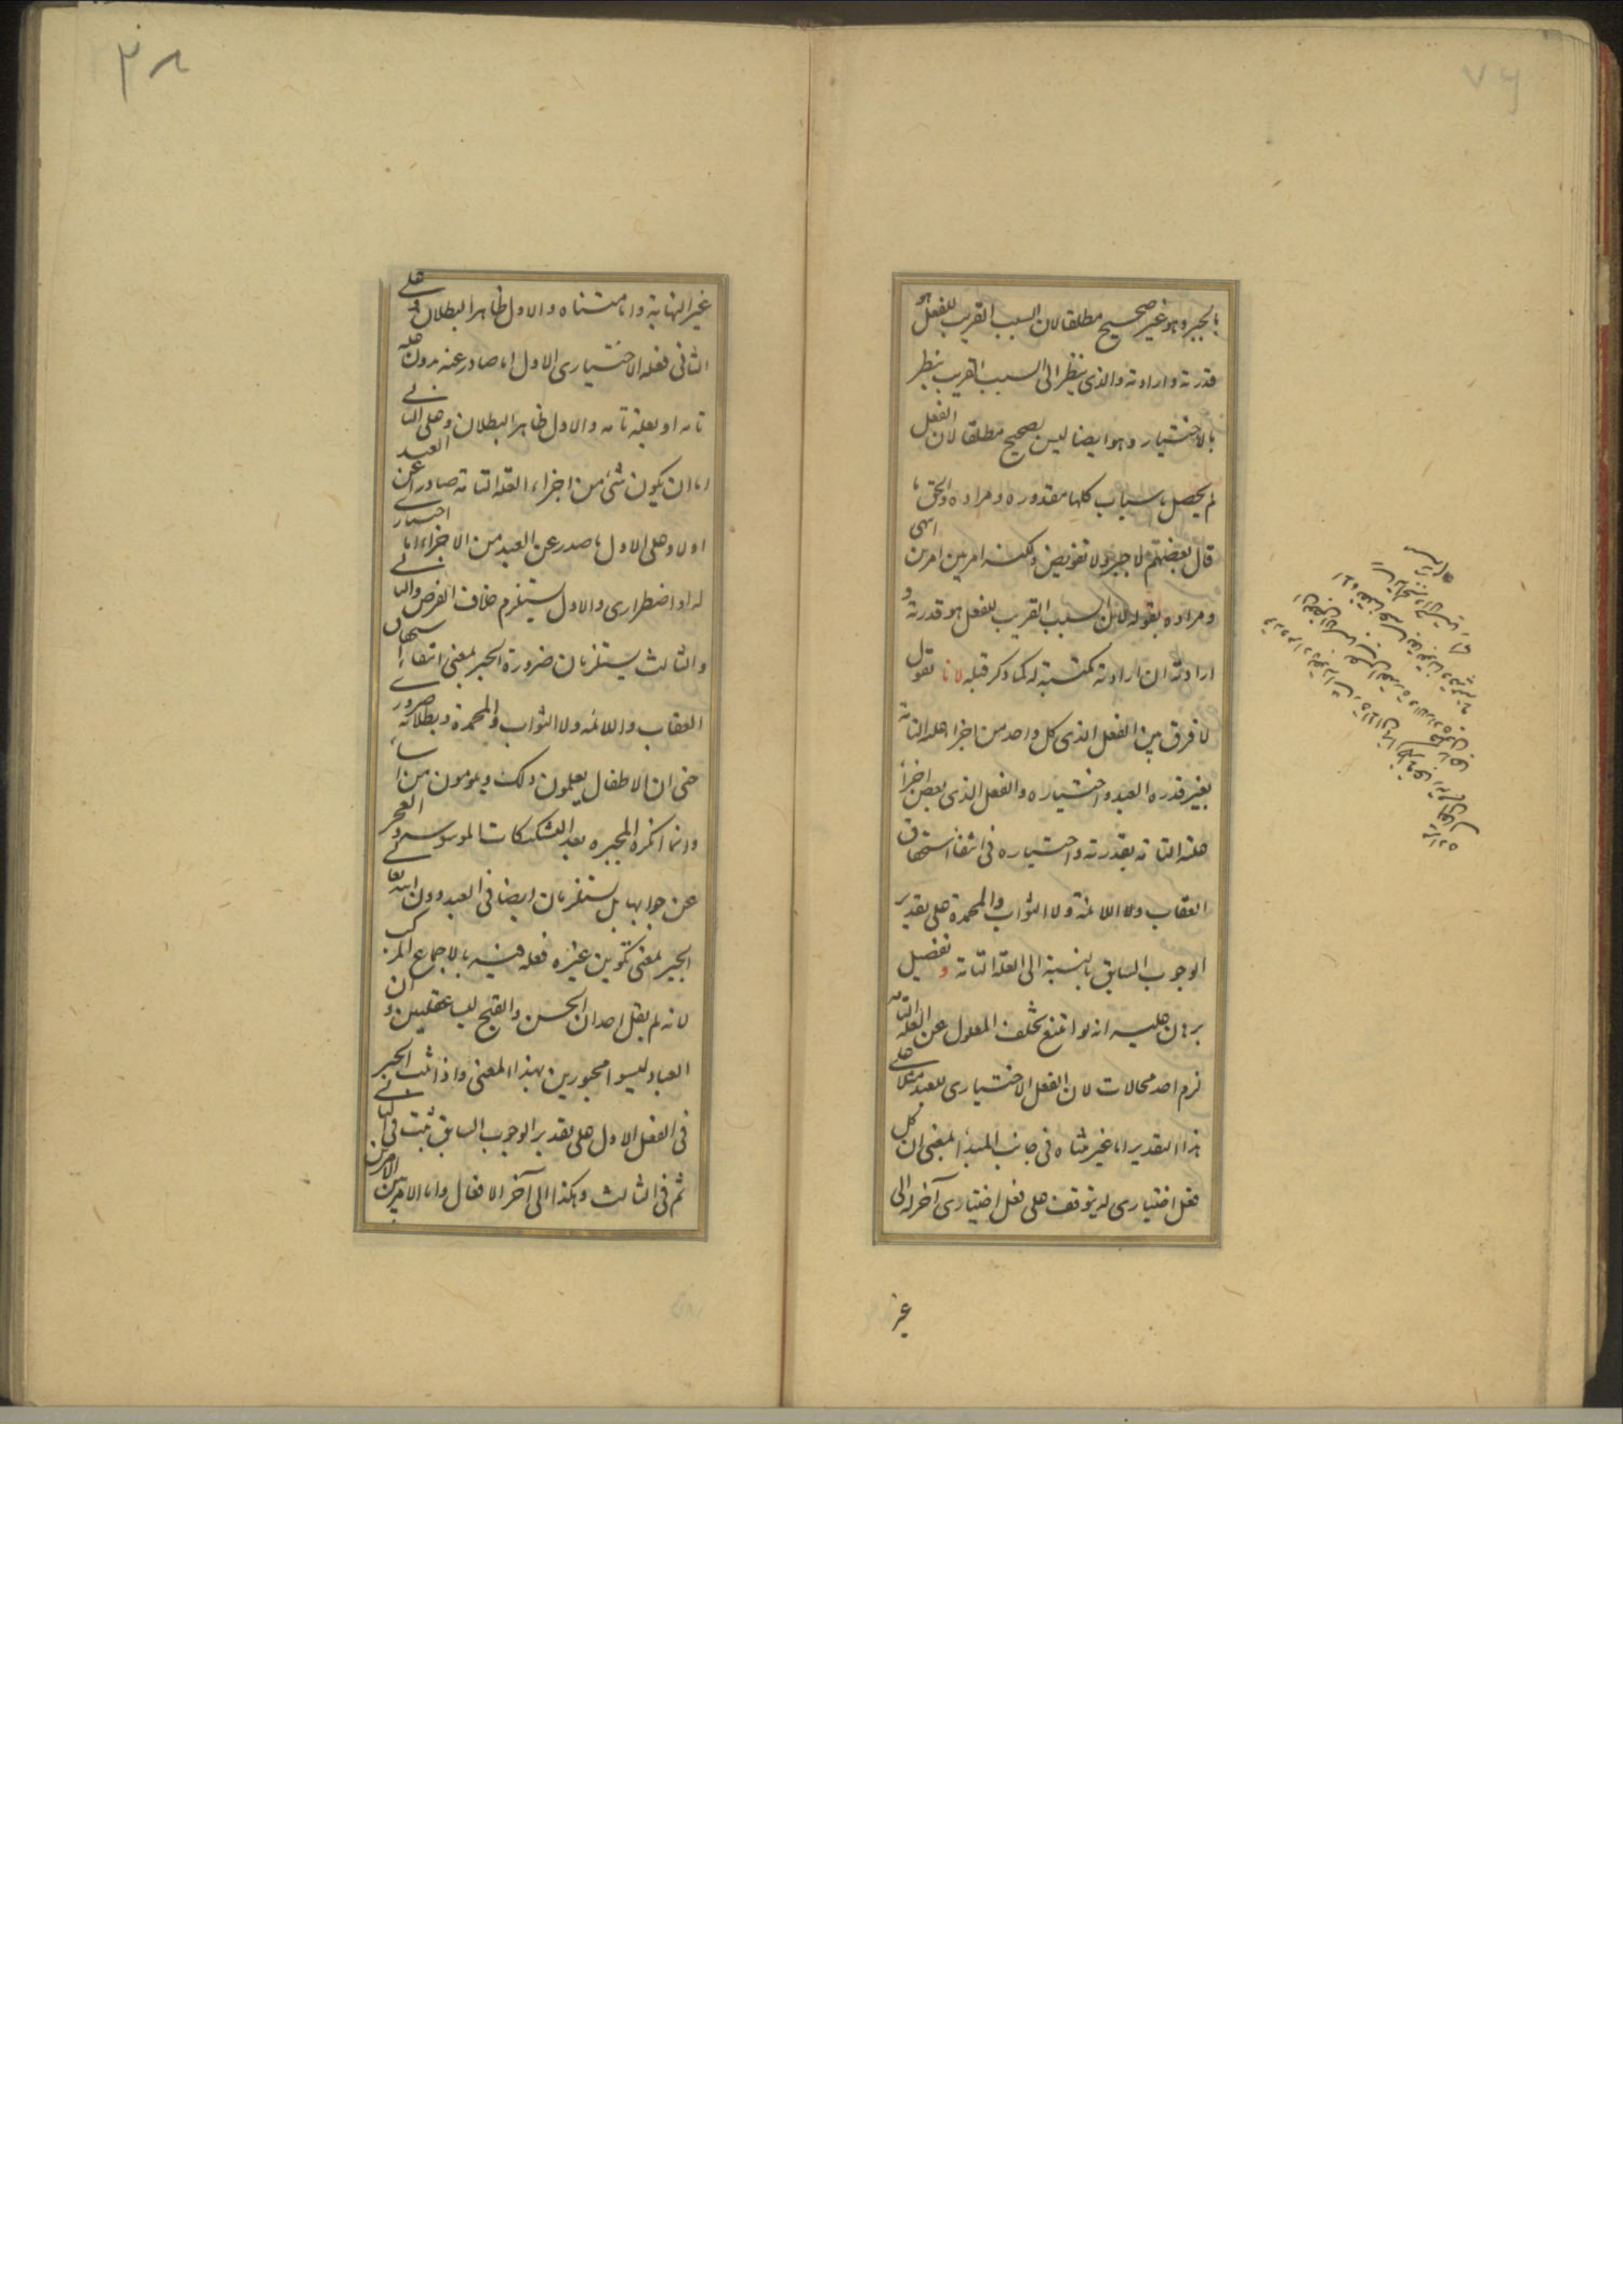 بالجبر وهو غير صحيح مطلقا لان السبب القريب للفعل هو
قدرته وارادته والذي ينظر الى السبب القريب ينظر
بالاختيار وهو ايضا ليس بصحيح مطلقا لان الفعل
لم يحصل باسباب كلها مقدوره ومراده والحق ما
قال بعضهم لا جبر ولا تفويض ولكنه امر بين امرين انتهى
ومراده بقوله لان السبب القريب للفعل هو قدرته و
ارادته ان ارادته مكتسبة له كما ذكر قبله لانا نقول
لا فرق بين الفعل الذي كل واحد من اجزاء علته التامة
بغير قدرة العبد واختياره والفعل الذي بعض اجزاء
علته التامة بقدرته واختياره في انتفاء استحقاق
العقاب ولا اللائمة ولا الثواب والمحمدة على تقدير
الوجوب السابق بالنسبة الى العلة التامة وتفصيل
برهان عليه انه لو امتنع تخلف المعلول عن العلة التامة
لزم احد محالات لان الفعل الاختياري للعبد مثلا على
هذا التقدير اما غير متناه في جانب المبدأ بمعنى ان كل
فعل اختياري له يتوقف على فعل اختياري آخر له الى
غير
٣٨
غير النهاية واما متناه والاول ظاهر البطلان وعلى
الثاني فعله الاختياري الاول اما صادر عنه بدون علة
تامة او بعلة تامة والاول ظاهر البطلان وعلى الثاني
اما ان يكون شئ من اجزاء العلة التامة صادرا عن العبد
اولا وعلى الاول ما صدر عن العبد من الاجزاء اما اختياري
له او اضطراري والاول يستلزم خلاف الفرض والثاني
والثالث يستلزمان ضرورة الجبر بمعنى انتفاء استحقاق
العقاب واللائمة ولا الثواب والمحمدة وبطلانه ضروري
حتى ان الاطفال يعلمون ذلك ويلومون من اساء
وانما انكره المجبره بعد التشكيكات الموسوسه والعجز
عن جوابها بل يستلزمان ايضا في العبد دون الله تعالى
الجبر بمعنى تكوين غيره فعله فيه بالاجماع المركب
لانه لم يقل احد ان الحسن والقبح ليسا عقليين وان
العباد ليسوا مجبورين بهذا المعنى واذا ثبت الجبر
في الفعل الاول على تقدير الوجوب السابق ثبت في الثاني
ثم في الثالث وهكذا الى آخر الافعال واما الامر بين الامرين